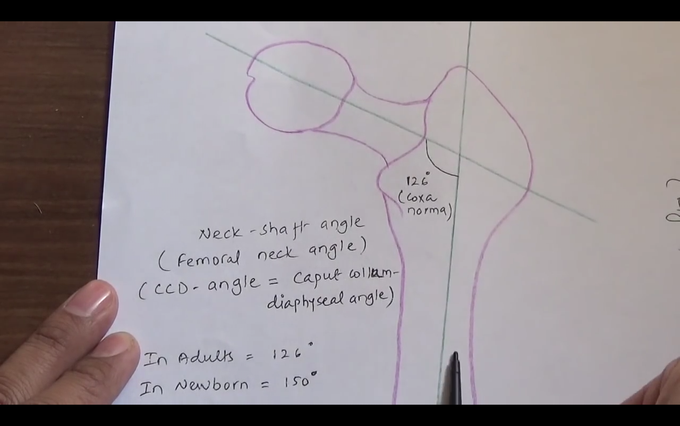 126°
(coxa
norma)
Neck-shaft angle
(femoral neck angle)
(CCD-angle = Caput collum-
diaphyseal angle)
In Adults = 126°
In Newborn = 150°